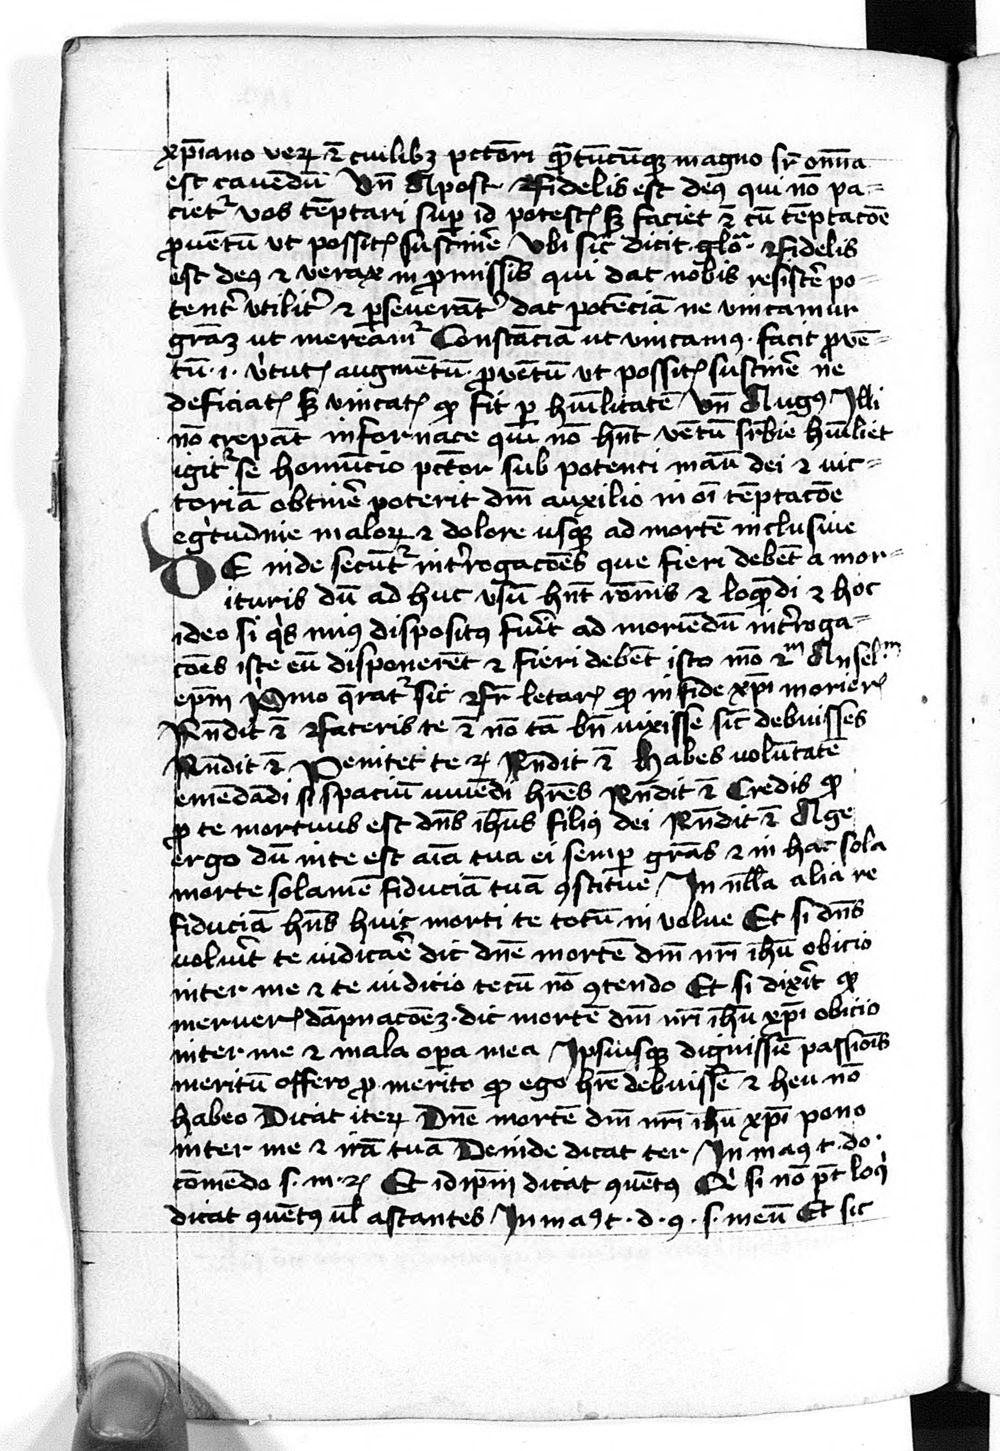 xp̄iano veꝝ et̄ cuilibꝫ pctōri qᵃntūcūqꝫ magno sr̄ om̄ia
est cauendū Vn̄ Apost· Fidelis est deꝰ qui nō pa=
cietʳ vos tēptari suꝑ id potestis sꝫ faciet et̄ cū tēptacōe
ꝓuētū vt possitis sustinē̄ Vbi sic dicit glōᵃ· Fidelis
est deꝰ ⁊ verax in ꝓmissis qui dat nobis resistē̄ po=
tentʳ vtilitʳ ⁊ ꝑseuerāntʳ dat potēciā ne vincamur
grāꝫ ut mereamʳ Constāciā ut vincamꝰ· facit ꝓuē=
tū·i·v̓tutis augmētū· ꝓuētū vt possitis sustinē̄ ne
deficiatis sꝫ vincatis qᵒ fit ꝑ hūilitatē Vn̄ Augꝰ Illi
nō crepāt in fornace qui nō hn̄t ventū suꝑbie hūiliet
igitʳ se homūcio pctōr sub potenti manu dei ⁊ vic=
toriā obtinē̄ poterit dm̄ auxilio in oī tēptacōe
egritudine maloꝝ ⁊ dolore usqꝫ ad mortē inclusiue
DE inde secūntʳ int̓rogacōes que fieri debēt a mor=
ituris dū ad huc vsū hn̄t rōnis ⁊ loquēdi ⁊ hoc
ideo si qⁱs minꝰ dispositꝰ fuīt ad moriēdū int̓roga=
cōes iste eū disponerēt ⁊ fieri debēt isto mō ẜm Anselᵐ
epm̄ Pⁱmo qᵃratʳ sic Fr̄ letaris qᵒ in fide xp̄i morieris
Rn̄dit et̄ Fateris te et̄ nō tā bn̄ vixisse sic debuisses
Rn̄dit et̄ Penitet te eꝝ Rn̄dit et̄ Habes volūtatē
emēdādi si spaciū viuēdi hr̄es Rn̄dit et̄ Credis qᵒ
ꝓ te mortuus est dn̄s ihūs filiꝰ dei Rn̄dit et̄ Age
ergo dū in te est aīa tua ei semꝑ grās ⁊ in hac sola
morte solamē fiduciā tuā ꝯstitue In nll̄a alia re
fiduciā hn̄s huic morti te totū in volue Et si dn̄s
voluīt te iudicar̄e dic dn̄e mortē dn̄i nr̄i ihū obicio
inter me ⁊ te iudicio tecū nō ꝯtendo Et si dixīt qᵒ
meruer̄is dāpnacōeꝫ· dic mortē dn̄i nr̄i ihū xp̄i obicio
inter me ⁊ mala oꝑa mea Ipsiusqꝫ dignissīe passiōis
meritū offero ꝓ merito qᵒ ego hr̄e debuissē ⁊ heu nō
habeo Dicat iteꝝ Dn̄e mortē dn̄i nr̄i ihū xp̄i pono
inter me ⁊ irā tuā Deinde dicat ter In maꝰ t· do·
cōmēdo s· m· Et id ip̄m dicat ꝯuētꝰ Qⁱ si nō pt̄ loqⁱ
dicat ꝯuētꝰ ul̄ astantes In maꝰ t· d· ꝯ· s· meū Et sic